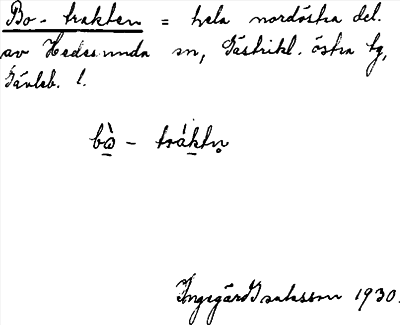 Bo-trakten = hela nordöstra del.
av Hedesunda sn, Gästrikl. östra tg,
Gävleb. l.
bò̱ - tráḵtn̥
Ingegärd Isaksson 1930.